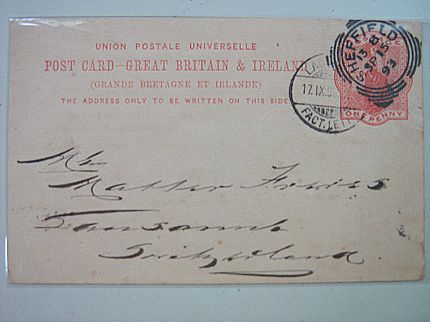 UNION POSTALE UNIVERSELLE
POST CARD–GREAT BRITAIN & IRELAND
(GRANDE BRETAGNE ET IRLANDE)
THE ADDRESS ONLY TO BE WRITTEN ON THIS SIDE
SHEFFIELD
SP 15
93
17.IX.9
FACT. LETT
ONE PENNY
Mr
Lausanne
Switzerland